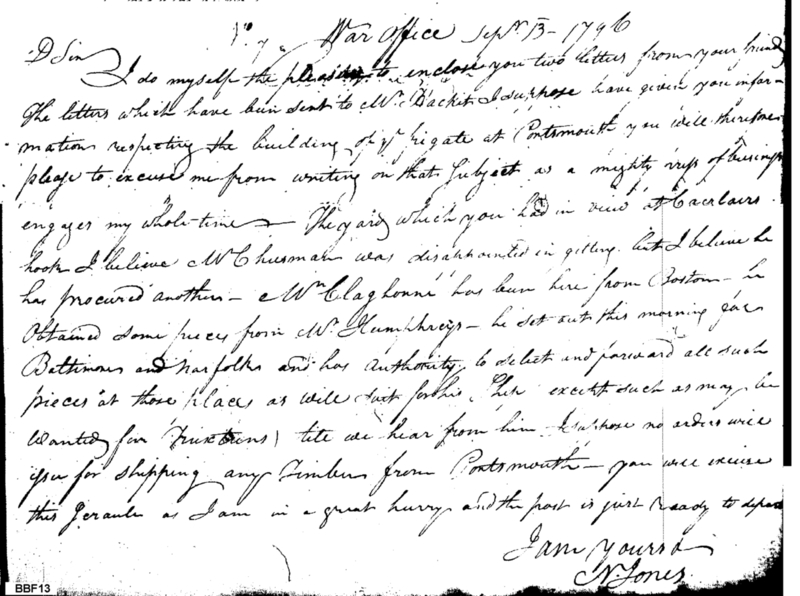 War Office Sepr. 13 - 1796
D Sir
I do myself the pleasure to enclose you two letters from your friend
The letters which have been sent to Mr. Hackit I suppose have given you infor-
mation respecting the building of ye frigate at Portsmouth you will therefore
please to excuse me from writing on that Subject as a mighty press of business
engages my whole time - The yard which you had in view at
hook I believe Mr Chusman was disappointed in getting but I believe he
has procured another - Mr. Claghorne has been here from Boston - he
obtained some pieces from Mr. Humphreys - he set out this morning for
Baltimore and Norfolk and has authority to select and forward all such
pieces at those places as will suit for his Ship except such as may be
wanted for Truxtuns) till we hear from him I suppose no orders will
issue for shipping any Timber from Portsmouth - you will excuse
this Scrawle as I am in a great hurry and the post is just ready to depart
I am yours &
N. Jones
BBF13